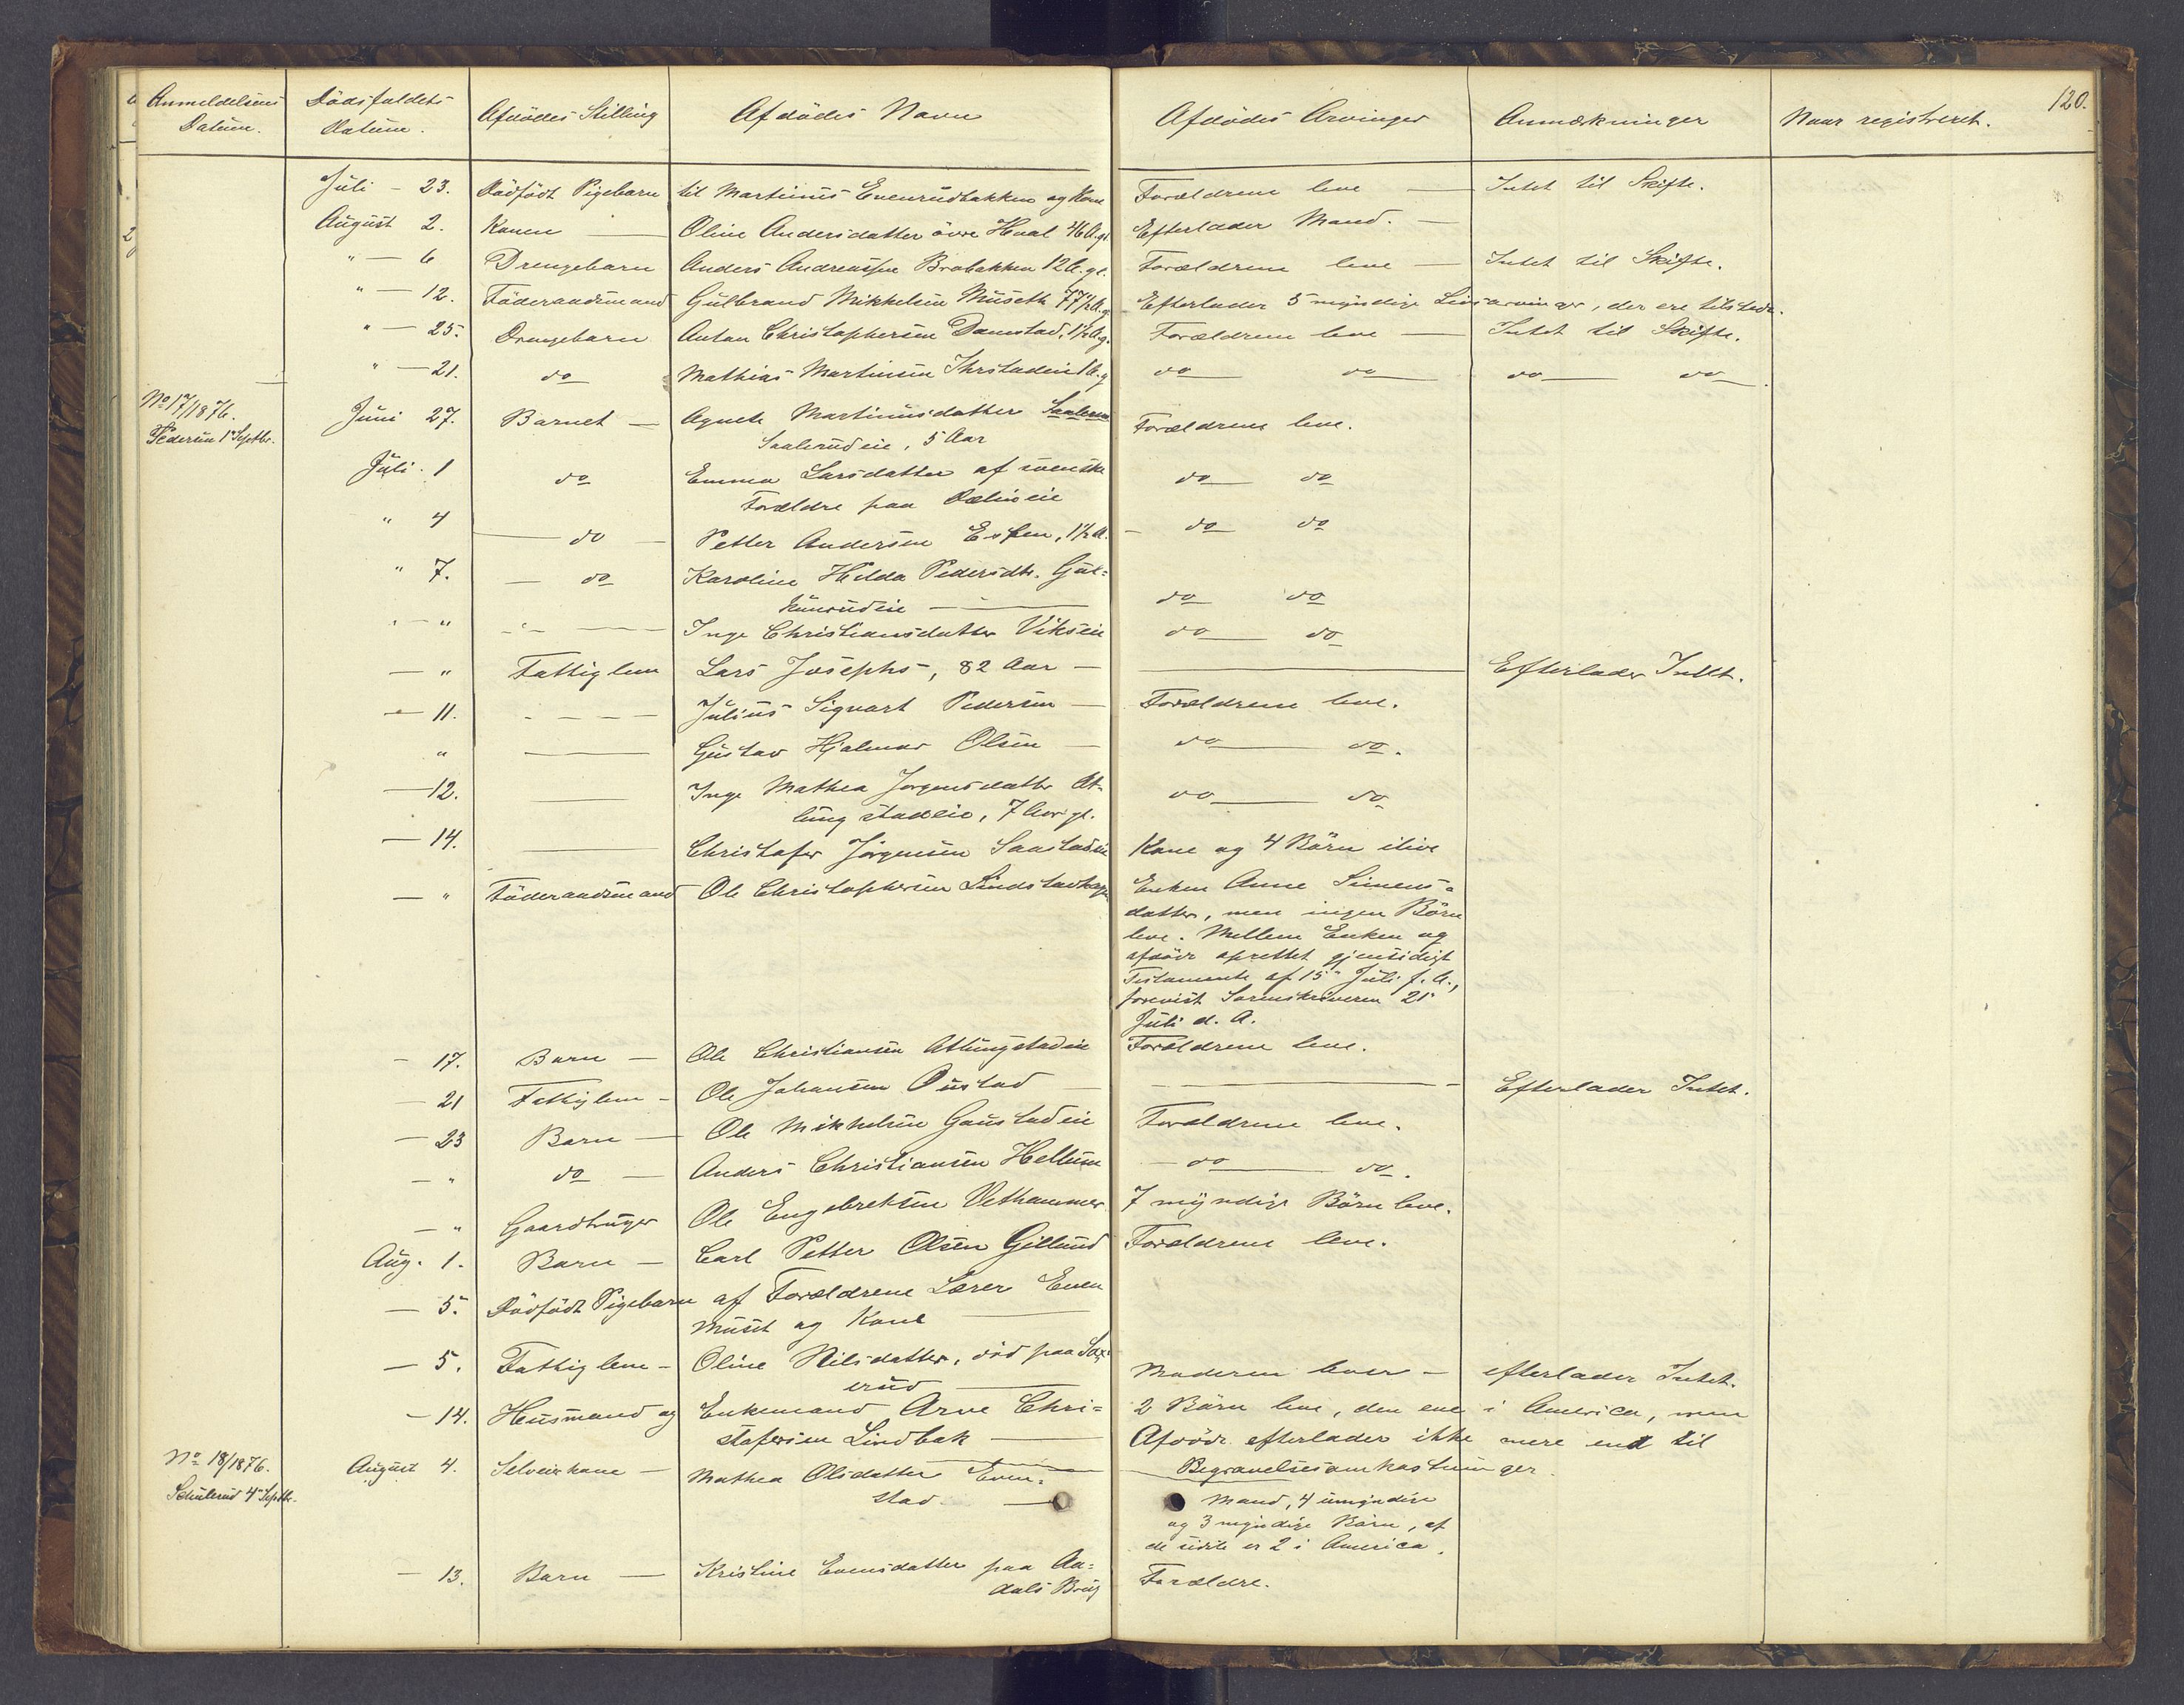 Anmeldelsens Datum. Dödsfaldets Datum. Afdödes Stilling Afdödes Navn Afdödes Arvinger Anmærkninger Naar registreret. 120.
Juli - 23. Dödfödt Pigebarn til Martinus Evenrudbakken og Kone Forældrene leve — Intet til Skifte.
August 2. Konen — Oline Andersdatter övre Hval 46 A. gl. Efterlader Mand. —
" — 6 Drengebarn Anders Andreassen Brobakken 12 A. gl. Forældrene leve — Intet til Skifte.
" — 12. Föderaadsmand Gulbrand Mikkelsen Museth 77½ A. g. Efterlader 5 myndige Livsarvinger, der ere tilstede.
" — 25. Drengebarn Anton Christophersen Damstad, 1½ A. g. Forældrene leve — Intet til Skifte.
" — 21. do Mathias Martinsen 1 A. g do — do — do — do.
No 17/1876. Juni 27. Barnet — Agnete Martinusdatter Forældrene leve.
Pedersen 1 Septbr. Saalerudeie, 5 Aar
Juli. 1 do Emma Larsdatter af svenske do — do
Forældre paa Dæliseie
" 4 — do — Petter Andersen Espen, 1½ A. — do do
" 7. — do Karoline Hilda Pedersdtr. Gul=
kunrudeie — do — do
" — " — " — Inge Christiansdatter Vikseie do — do
— " Fattiglem Lars Josephs-, 82 Aar — Efterlader Intet.
— 11. - - - - Julius Sigvart Pedersen — Forældrene leve.
" — Gustav Hjalmar Olsen — do — do.
— 12. — Inge Mathea Jorgensdatter At-
lungstadeie, 7 Aar gl. do — do
— 14. — Christofer Jörgensen Saastadeie Kone og 4 Börn ilive
— " Föderaadsmand Ole Christophersen Lindstadhagen Enken Anne Simens=
datter, men ingen Börn
leve. Mellem Enken og
afdöde oprettet gjensidigt
Testamente af 15 Juli f. A.,
forevist Sorenskriveren 21
Juli d. A.
— 17. Barn — Ole Christiansen Atlungstadeie Forældrene leve.
— 21 Fattiglem - Ole Johansen Oustad — Efterlader Intet.
— 23 Barn — Ole Mikkelsen Gaustadeie Forældrene leve.
— " do — Anders Christiansen Hellum — do — do.
— " Gaardbruger Ole Engebretsen Vethammer 7 myndige Börn leve.
Aug. 1. Barn — Carl Petter Olsen Gillund Forældrene leve.
— 5. Dödfödt Pigebarn af Forældrene Lærer Even
Muset og Kone —
— 5. Fattiglem - Oline Nilsdatter, död paa Sax=
erud — Moderen lever — efterlader Intet.
— 14. Husmand og Enkemand Arve Chri= 2 Börn leve, den ene i America, men
stofersen Lindbak — Afdöde efterlader ikke mere end til
Begravelsesomkostninger.
No 18/1876. August 4. Selveierkone — Mathea Olsdatter Even=
Schulerud 4 Septbr. stad — Mand, 4 umyndige
og 3 myndige Börn, af
de sidste er 2 i America.
— 13. Barn — Kristine Evensdatter paa Aa=
dals Brug Forældre.